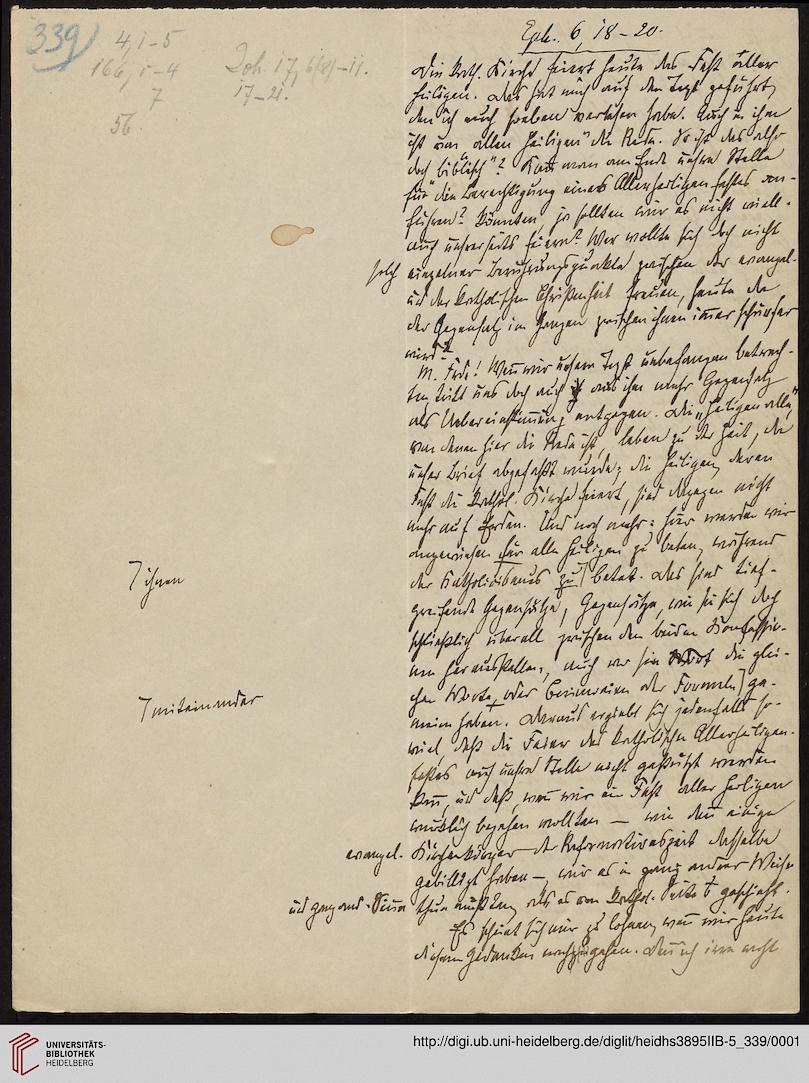 339
4,1-5
166, 1-4
7
56.
Joh. 17, 6(8)-11.
17-21.
Eph. 6, 18-20.
Die kath. Kirche feiert heute das Fest aller
Heiligen. Das hat mich auf den Text geführt,
den ich euch soeben verlesen habe. Auch in ihm
ist von „allen Heiligen" die Rede. So ist das also
doch „biblisch"? Kann man am Ende unsre Stelle
für die Berechtigung eines Allerheiligenfestes an-
führen? Könnten, ja sollten wir es nicht viell.
auch unsrerseits feiern? Wer wollte sich doch nicht
solch einzelner Berührungspunkte zwischen der evangel.
und der katholischen Christenheit freuen, heute da
der Gegensatz im Ganzen zwischen ihnen immer schärfer
wird?
M. Frde! Wenn wir unsern Text unbefangen betrach-
ten, tritt uns doch auch aus ihm mehr Gegensatz
als Uebereinstimmung entgegen. Die „Heiligen alle",
von denen hier die Rede ist, leben zu der Zeit, da
unser Brief abgefaßt wurde; die Heiligen, deren
Fest die kathol. Kirche feiert, sind dagegen nicht
mehr auf Erden. Und noch mehr: hier werden wir
angewiesen für alle Heiligen zu beten, während
der Katholicismus zu ⌈ betet. Das sind tief-
⌈ ihnen
greifende Gegensätze, Gegensätze, wie sie sich doch
schließlich überall zwischen den beiden Konfessio-
nen herausstellen, auch wo sie die glei-
chen Worte oder Ceremonien oder Formeln ⌈ ge-
⌈ miteinander
mein haben. Daraus ergiebt sich jedenfalls so-
viel, daß die Feier des katholischen Allerheiligen-
festes auf unsre Stelle nicht gestützt werden
kann, und daß, wenn wir ein Fest aller Heiligen
wirklich begehen wollten — wie denn einige
evangel. Kirchenkörper der Reformationszeit dasselbe
gebilligt haben —, wir es in ganz andrer Weise
und ganz and. Sinn thun müßten, als es von kathol. Seite geschieht.
Es scheint sich mir zu lohnen, wenn wir heute
diesem Gedanken nachgehen. Denn ich irre nicht
UNIVERSITÄTS-
BIBLIOTHEK
HEIDELBERG
http://digi.ub.uni-heidelberg.de/diglit/heidhs3895IIB-5_339/0001